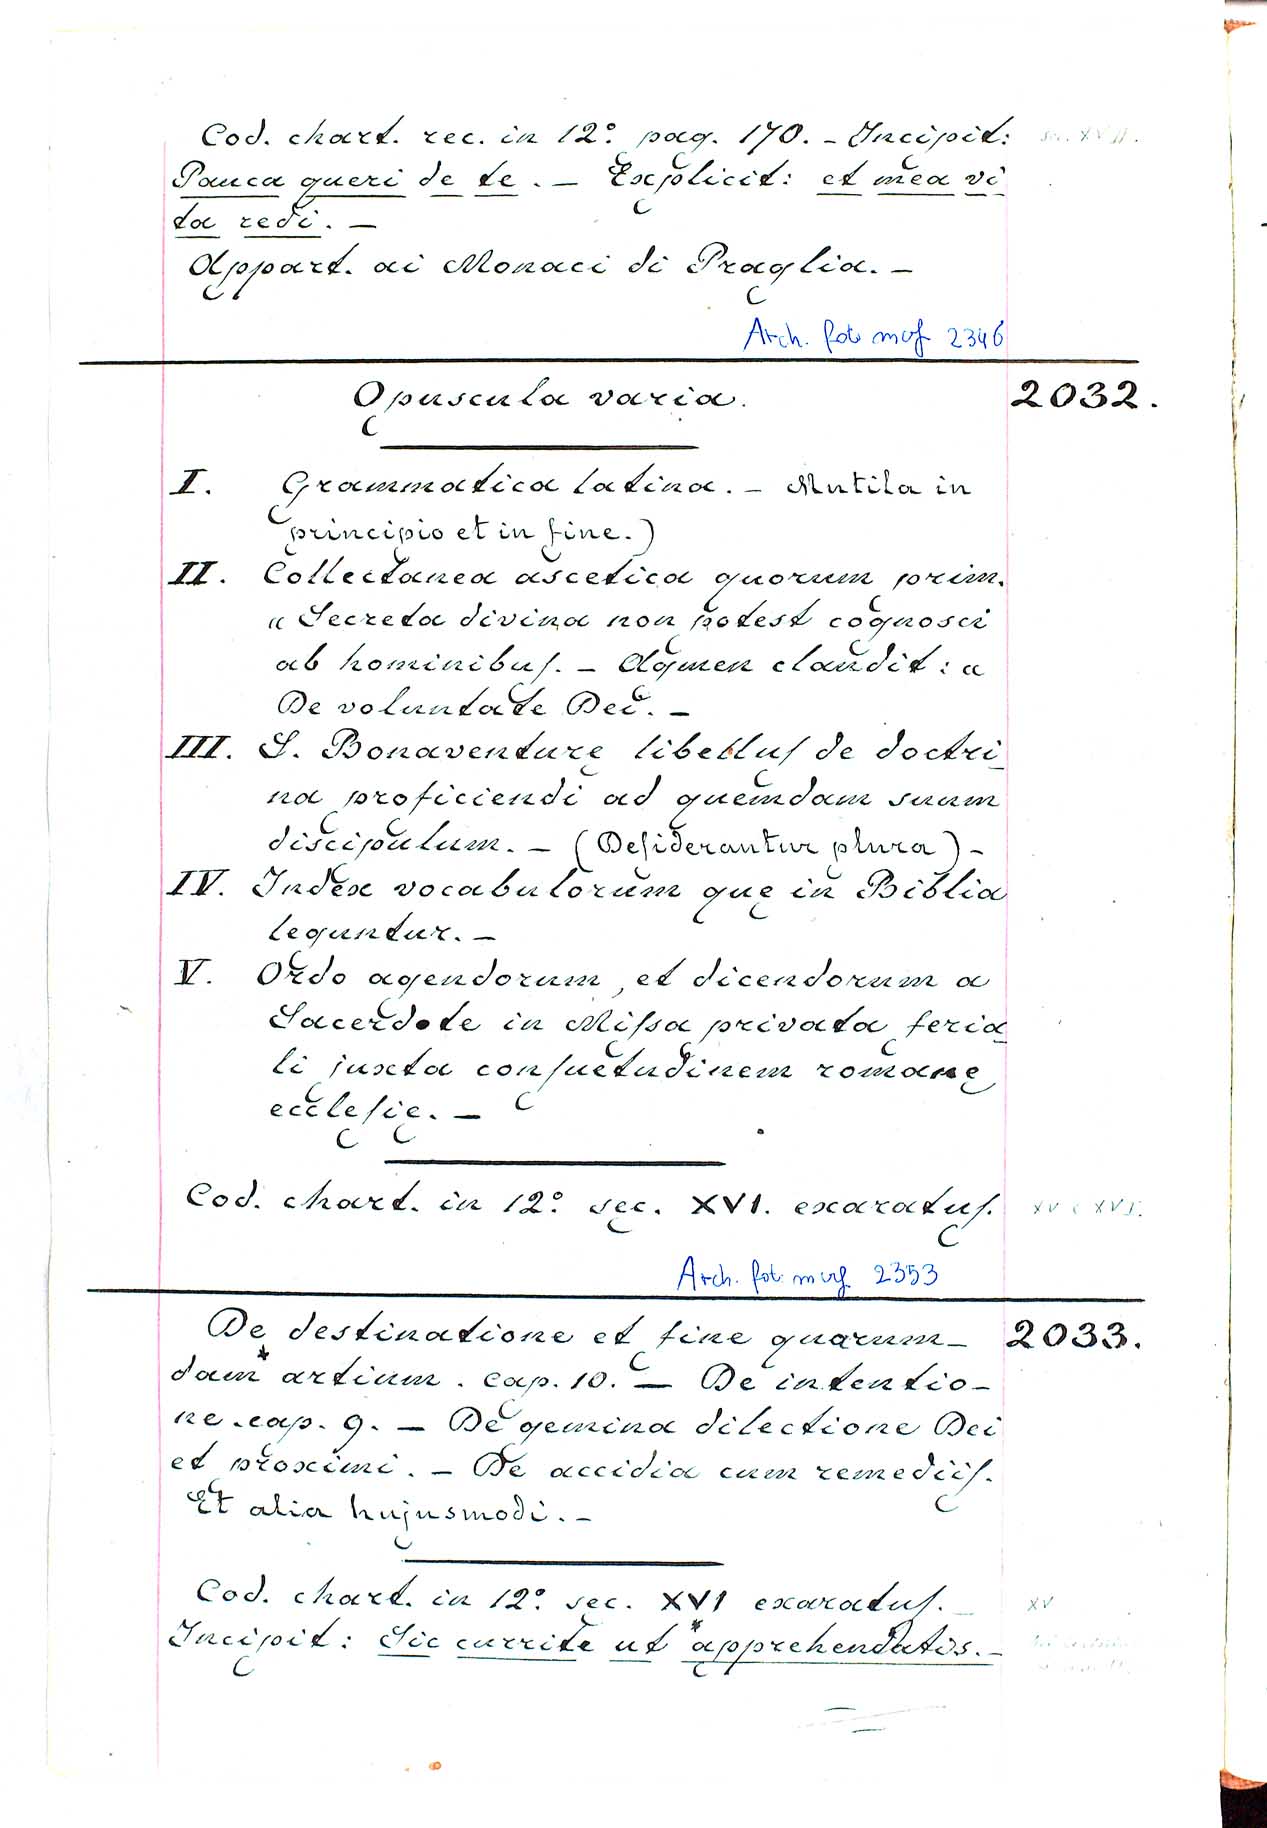 Cod. chart. rec. in 12°. pag. 170. – Incipit:
Pauca queri de te. – Explicit: et mea vi
ta redi. –
Appart. ai Monaci di Praglia. –
Arch. fot. mvf 2346
Opuscula varia. 2032.
I. Grammatica latina. – Mutila in
principio et in fine.)
II. Collectanea ascetica quorum prim.
" Secreta divina non potest cognosci
ab hominibus. – Agmen claudit: "
De voluntate Dei. –
III. S. Bonaventurę libellus de doctri_
na proficiendi ad quemdam suum
discipulum. – (Desiderantur plura) –
IV. Index vocabulorum quę in Biblia
leguntur. –
V. Ordo agendorum, et dicendorum a
Sacerdote in Missa privata feria_
li juxta consuetudinem romanę
ecclesię. –
Cod. chart. in 12°. sęc. XVI. exaratus. XV e XVI.
Arch. fot. mvf 2353
De destinatione et fine quarum– 2033.
dam * artium. cap. 10. – De intentio–
ne. cap. 9. – De gemina dilectione Dei
et proximi. – De accidia cum remediis.
Et alia hujusmodi. –
Cod. chart. in 12°. sec. XVI exaratus. – XV
Incipit: Sic currite ut * apprehendatis. –